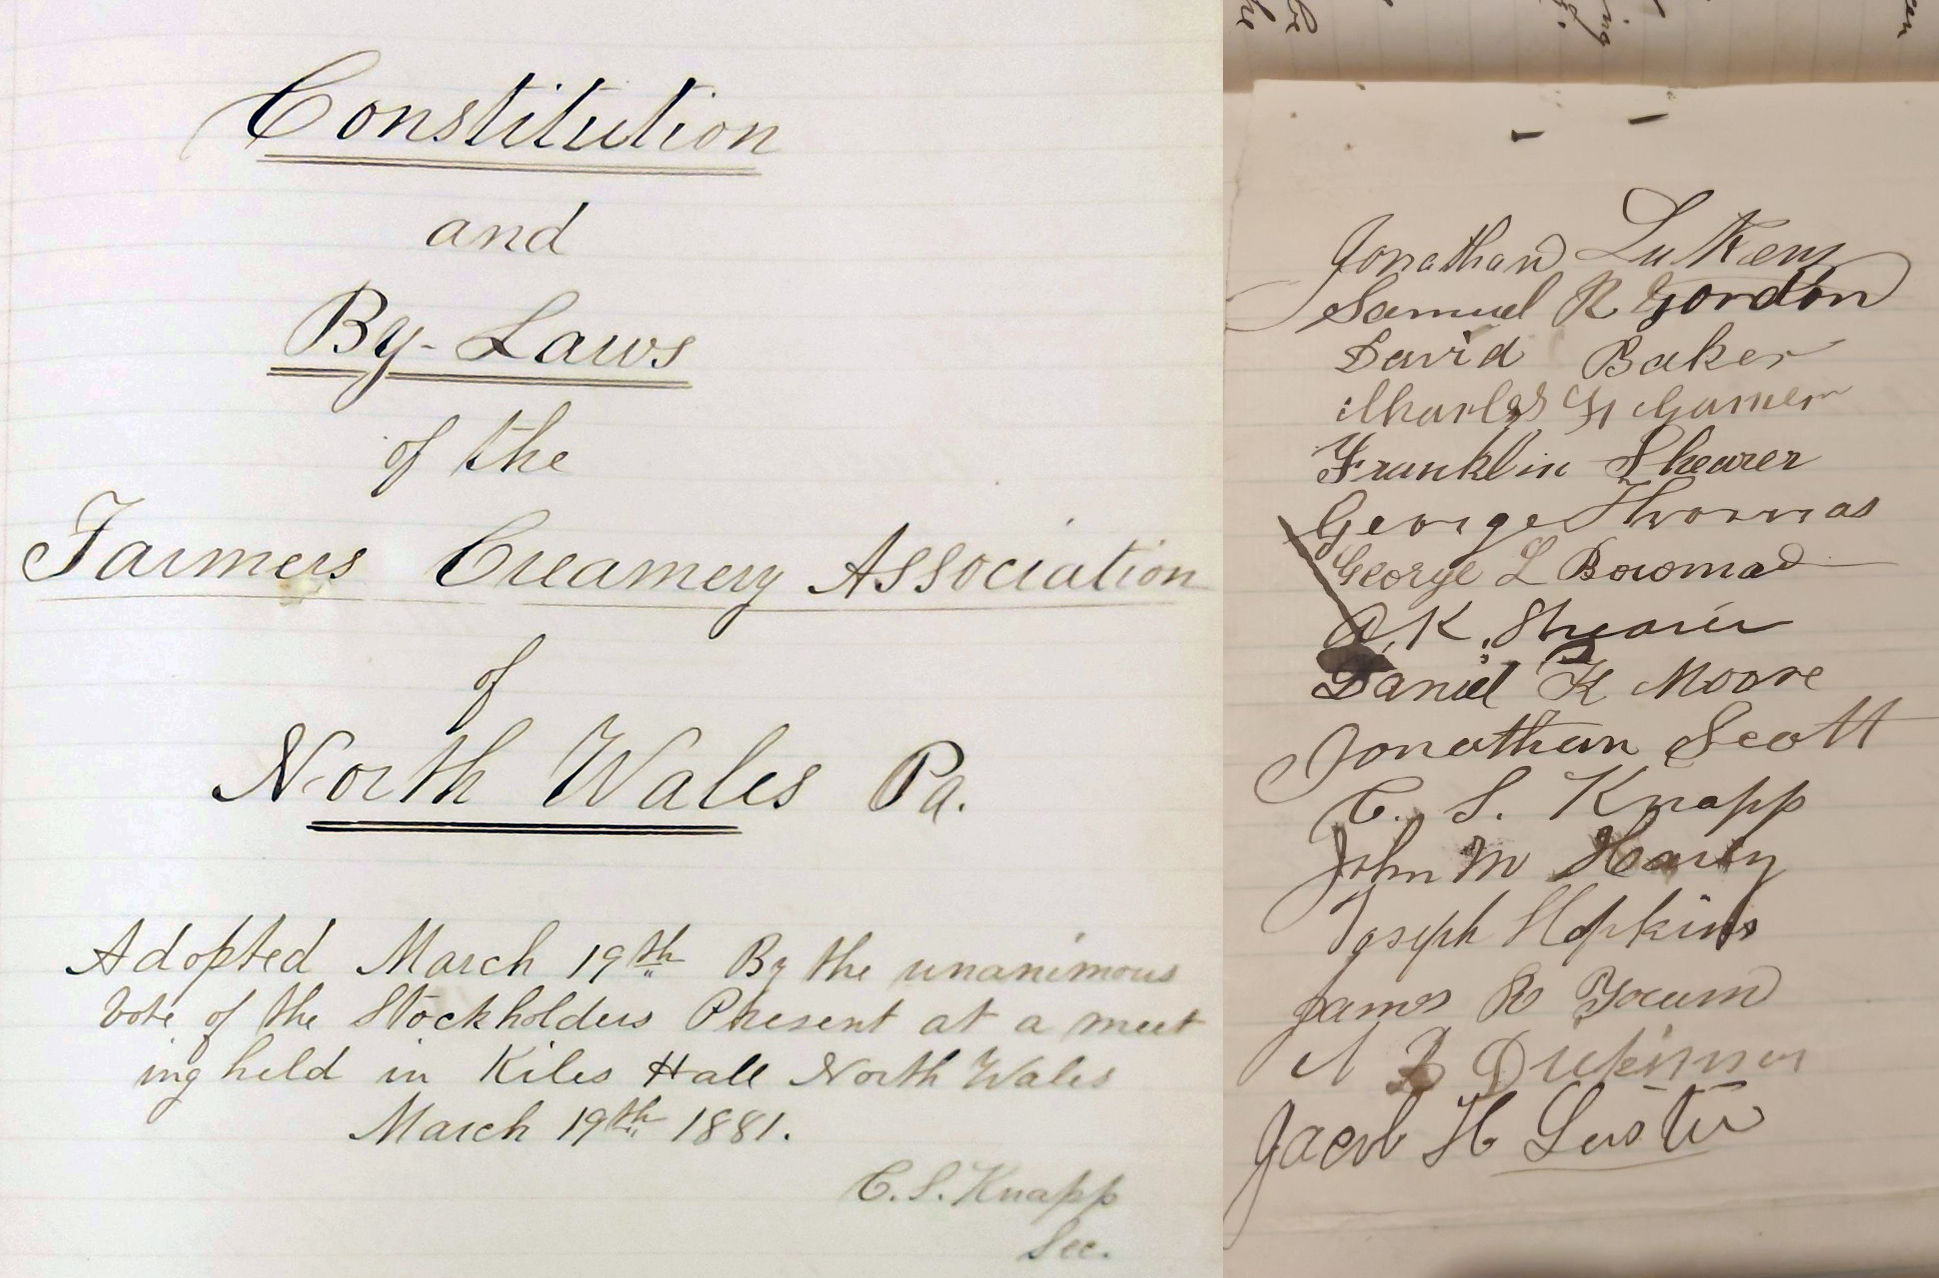 Constitution
and
By-Laws
of the
Farmers Creamery Association
of
North Wales Pa.
Adopted March 19th By the unanimous
vote of the Stockholders Present at a meet
ing held in Kiles Hall North Wales
March 19th 1881.
C. S. Knapp
Sec.
Jonathan Lukens
Samuel R Gordon
David Baker
Charles
Franklin Shearer
George Thomas
George L Bowman
A. K. Shearer
Daniel K Moore
Jonathan Scott
C. S. Knapp
John M Harty
Joseph Hopkins
James R Yocum
Jacob H Luster